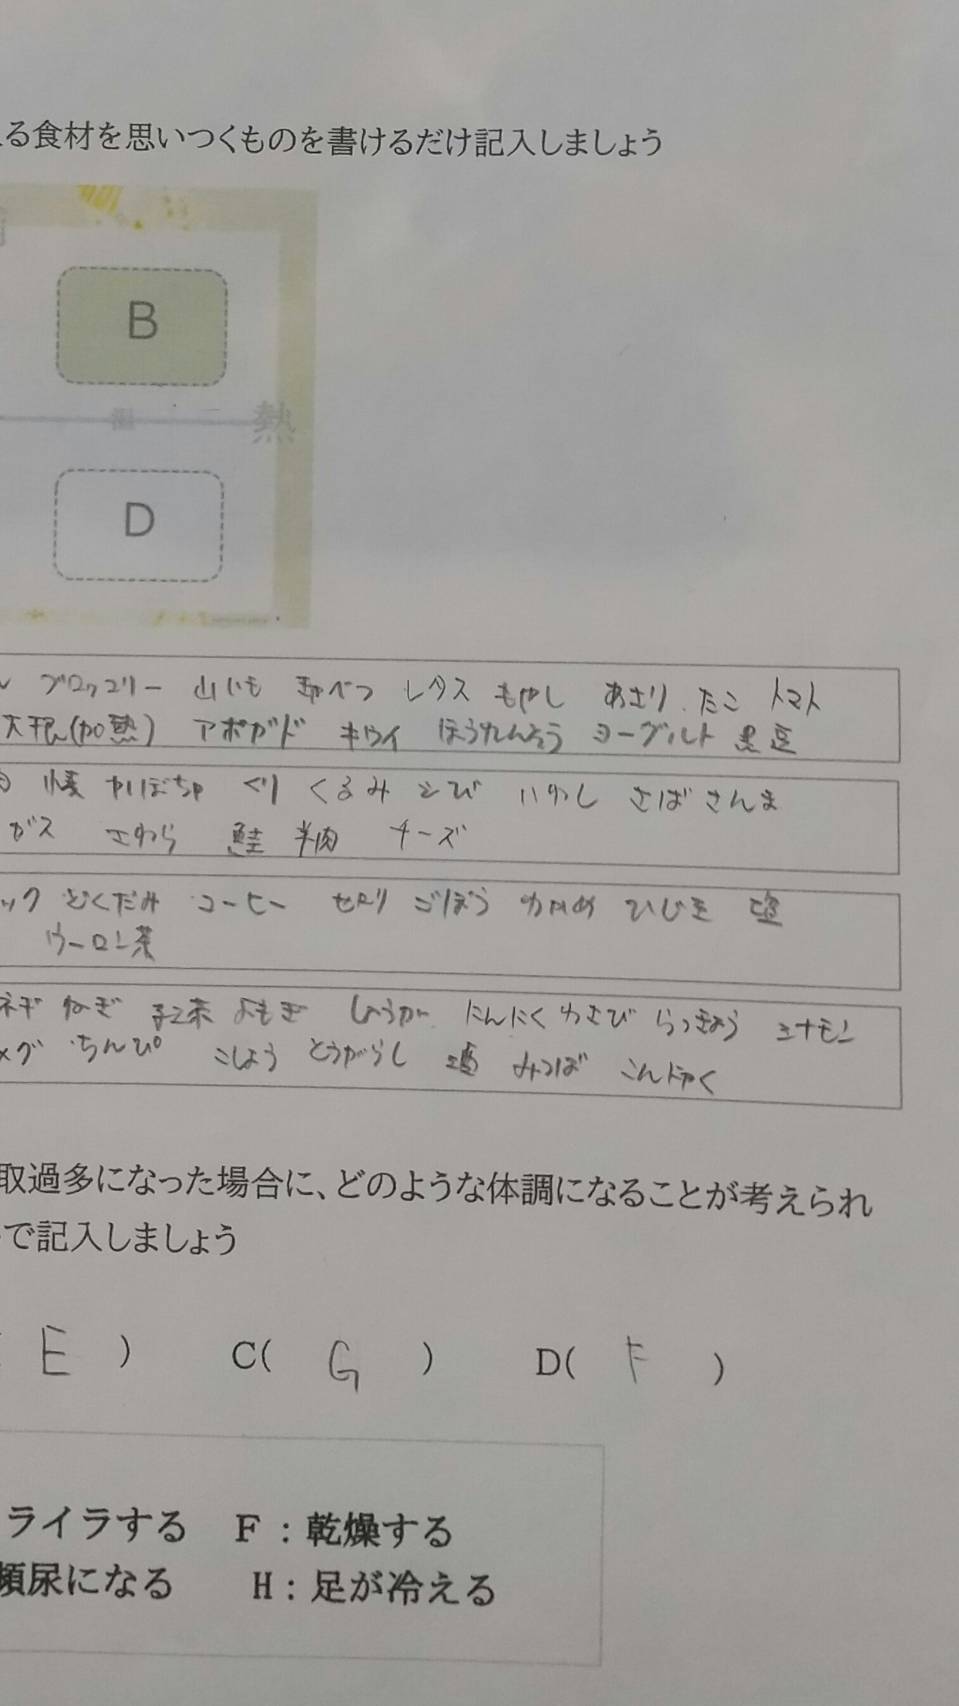 る食材を思いつくものを書けるだけ記入しましょう
B
熱
D
ブロッコリー 山いも キャベツ レタス もやし あさり たこ トマト
大根(加熱) アボガド キウイ ほうれんそう ヨーグルト 黒豆
かぼちゃ くり くるみ えび いわし さば さんま
ガス さわら 鮭 羊肉 チーズ
ック どくだみ コーヒー セロリ ごぼう わかめ ひじき 塩
ウーロン茶
ネギ ねぎ 紅茶 よもぎ しょうが にんにく わさび らっきょう シナモン
メグ ちんぴ こしょう とうがらし 酒 みつば こんにゃく
取過多になった場合に、どのような体調になることが考えられ
で記入しましょう
E ) C( G ) D( F )
ライラする F:乾燥する
頻尿になる H:足が冷える